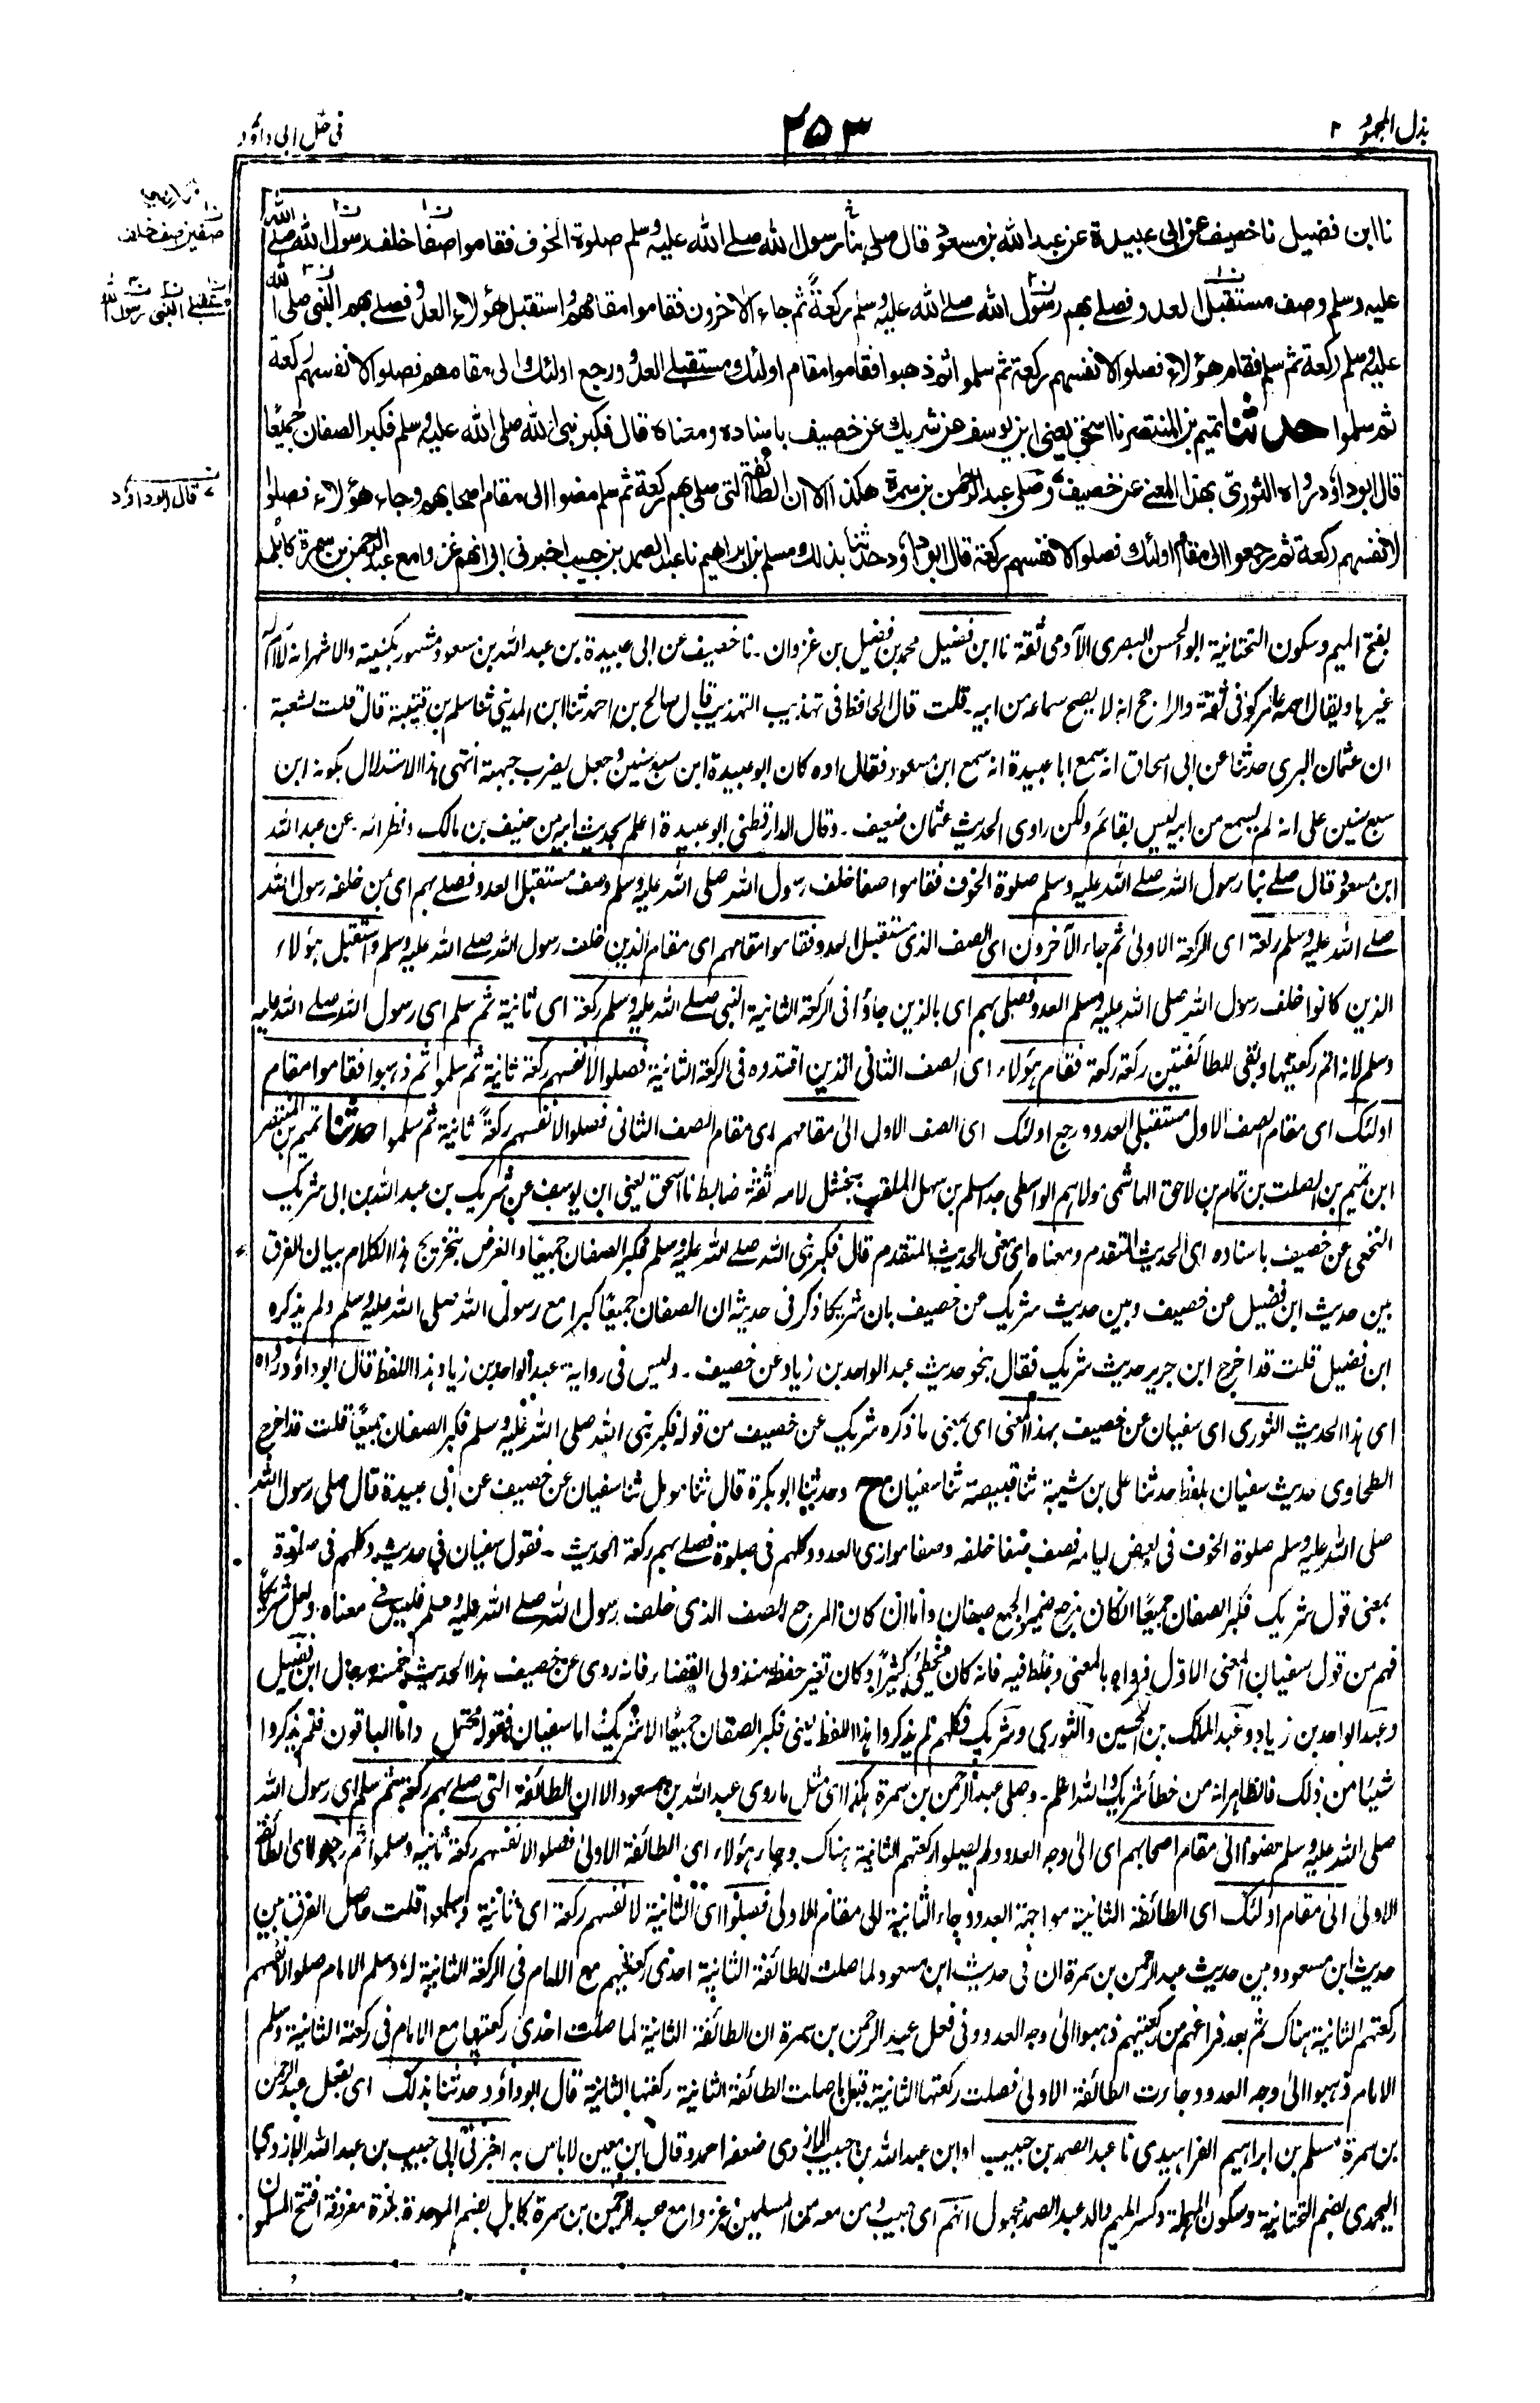 بذل المجهود ۲
۲۵۳
فی حل ابی داؤد
نا ابن فضيل نا خصيف عن ابی عبيدة عن عبد الله بن مسعود قال صلی بنا رسول الله صلے الله عليه وسلم صلوة الخوف فقاموا صفا خلف رسول الله صلے الله
عليه وسلم وصف مستقبل العدو فصلے بهم رسول الله صلے الله عليه وسلم ركعة ثم جاء الاخرون فقاموا مقامهم واستقبل هؤلاء العدو فصلے بهم النبی صلی الله
عليه وسلم ركعة ثم سلم فقام هؤلاء فصلوا لانفسهم ركعة ثم سلموا ثم ذهبوا فقاموا مقام اولئك مستقبلے العدو ورجع اولئك الی مقامهم فصلوا لانفسهم ركعة
ثم سلموا حدثنا تميم بن المنتصر نا اسحق يعنی ابن يوسف عن شريك عن خصيف باسناده ومعناه قال فكبر نبی الله صلی الله عليه وسلم فكبر الصفان جميعًا
قال ابوداؤد رواه الثوری بهذا المعنے عن خصيف وصلی عبد الرحمن بن سمرة هكذا الا ان الطائفة التی صلی بهم ركعة ثم سلم مضوا الی مقام اصحابهم وجاء هؤلاء فصلوا
لانفسهم ركعة ثم رجعوا الی مقام اولئك فصلوا لانفسهم ركعة قال ابوداؤد حدثنا بذلك مسلم بن ابراهيم نا عبد الصمد بن حبيب اخبرنی ابی انهم غزوا مع عبد الرحمن بن سمرة كابل
صفين صف خلف
مستقبلے النبی رسول الله
قال ابو داؤد
بفتح الميم وسكون التحتانية ابو الحسن البصری الآدمی ثقة نا ابن فضيل محمد بن فضيل بن غزوان ۔ نا خصيف عن ابی عبيدة بن عبد الله بن مسعود مشهور بكنيته والاشهر انه لا اسم له
غيرها ويقال اسمه عامر كوفی ثقة والراجح انه لا يصح سماعه من ابيه ۔ قلت قال الحافظ فی تهذيب التهذيب قال صالح بن احمد ثنا ابن المدينی ثنا سلم بن قتيبة قال قلت لشعبة
ان عثمان البری حدثنا عن ابی اسحاق انه سمع ابا عبيدة انه سمع ابن مسعود فقال اوه كان ابو عبيدة ابن سبع سنين وجعل يضرب جبهته انتهی هذا الاستدلال بكونه ابن
سبع سنين علی انه لم يسمع من ابيه ليس بقائم ولكن راوی الحديث عثمان ضعيف ۔ وقال الدارقطنی ابو عبيدة اعلم بحديث ابيه من حنيف بن مالك ونظرائه ۔ عن عبد الله
ابن مسعود قال صلے بنا رسول الله صلے الله عليه وسلم صلوة الخوف فقاموا صفا خلف رسول الله صلی الله عليه وسلم وصف مستقبل العدو فصلے بهم ای من خلفه رسول الله
صلے الله عليه وسلم ركعة ای الركعة الاولیٰ ثم جاء الآخرون ای الصف الذی مستقبل العدو فقاموا مقامهم ای مقام الذين خلف رسول الله صلے الله عليه وسلم واستقبل هؤلاء
الذين كانوا خلف رسول الله صلی الله عليه وسلم العدو فصلی بهم ای بالذين جاؤا فی الركعة الثانية النبی صلے الله عليه وسلم ركعة ای ثانية ثم سلم ای رسول الله صلے الله عليه
وسلم لانه اتم ركعتيها وبقی للطائفتين ركعة ركعة فقام هؤلاء ای الصف الثانی الذين اقتدوه فی الركعة الثانية فصلوا لانفسهم ركعة ثانية ثم سلموا ثم ذهبوا فقاموا مقام
اولئك ای مقام الصف الاول مستقبلی العدو ورجع اولئك ای الصف الاول الیٰ مقامهم ای مقام الصف الثانی فصلوا لانفسهم ركعةً ثانية ثم سلموا حدثنا تميم بن المنتصر
ابن تميم بن الصلت بن تمام بن لاحق الهاشمی مولاهم الواسطی جد اسلم بن سهل الملقب بحشل لامه ثقة ضابط نا اسحق يعنی ابن يوسف عن شريك بن عبد الله بن ابی شريك
النخعی عن خصيف باسناده ای الحديث المتقدم ومعناه ای بمعنی الحديث المتقدم قال فكبر نبی الله صلے الله عليه وسلم فكبر الصفان جميعًا والغرض بتخريج هذا الكلام بيان الفرق
بين حديث ابن فضيل عن خصيف وبين حديث شريك عن خصيف بان شريكا ذكر فی حديثه ان الصفان جميعًا كبرا مع رسول الله صلی الله عليه وسلم ولم يذكره
ابن فضيل قلت قد اخرج ابن جرير حديث شريك فقال بنحو حديث عبد الواحد بن زياد عن خصيف ۔ وليس فی رواية عبد الواحد بن زياد هذا اللفظ قال ابو داؤد رواه
ای هذا الحديث الثوری ای سفيان عن خصيف بهذا المعنی ای بمعنی ما ذكره شريك عن خصيف من قوله فكبر نبی الله صلی الله عليه وسلم فكبر الصفان جميعًا قلت قد اخرج
الطحاوی حديث سفيان بلفظ حدثنا علی بن شيبة ثنا قبيصة ثنا سفيان ح وحدثنا ابو بكرة قال ثنا مومل ثنا سفيان عن خصيف عن ابی عبيدة قال صلی رسول الله
صلی الله عليه وسلم صلوة الخوف فی بعض ايامه فصف صفا خلفه وصفا موازی العدو وكلهم فی صلوة فصلے بهم ركعة الحديث ۔ فقول سفيان فی حديثه وكلهم فی صلوة
بمعنی قول شريك فكبر الصفان جميعًا ان كان مرجع ضمير الجمع صفان واما ان كان المرجع الصف الذی خلف رسول الله صلے الله عليه وسلم فليس فی معناه ولعل شريكًا
فهم من قول سفيان المعنی الاول فرواه بالمعنی وغلط فيه فانه كان مخطئ كثيرًا وكان تغير حفظه منذ ولی القضاء فانه روی عن خصيف هذا الحديث خمسة رجال ابن فضيل
وعبد الواحد بن زياد وعبد الملك بن الحسين والثوری وشريك فكلهم لم يذكروا هذا اللفظ يعنی فكبر الصفان جميعًا الا شريك اما سفيان فقوله محتمل واما الباقون فلم يذكروا
شيئا من ذلك فالظاهر انه من خطأ شريك والله اعلم ۔ وصلی عبد الرحمن بن سمرة هكذا ای مثل ما روی عبد الله بن مسعود الا ان الطائفة التی صلے بهم ركعة ثم سلم ای رسول الله
صلی الله عليه وسلم مضوا الی مقام اصحابهم ای الیٰ وجه العدو ولم يصلوا ركعتهم الثانية هناك وجاء هؤلاء ای الطائفة الاولیٰ فصلوا لانفسهم ركعة ثانية وسلموا ثم رجعوا ای الطائفة
الاولیٰ الیٰ مقام اولئك ای الطائفة الثانية مواجهة العدو وجاء الثانية الی مقام الاولی فصلوا ای الثانية لانفسهم ركعة ای ثانية وسلموا قلت حاصل الفرق بين
حديث ابن مسعود وبين حديث عبد الرحمن بن سمرة ان فی حديث ابن مسعود لما صلت الطائفة الثانية احدی ركعتيهم مع الامام فی الركعة الثانية له وسلم الامام صلوا لانفسهم
ركعتهم الثانية هناك ثم بعد فراغهم من ركعتيهم ذهبوا الیٰ وجه العدو وفی فعل عبد الرحمن بن سمرة ان الطائفة الثانية لما صلت احدیٰ ركعتيها مع الامام فی ركعته الثانية وسلم
الامام ذهبوا الیٰ وجه العدو وجاءت الطائفة الاولیٰ فصلت ركعتها الثانية قبل ما صلت الطائفة الثانية ركعتها الثانية قال ابو داؤد حدثنا بذلك ای بفعل عبد الرحمن
بن سمرة مسلم بن ابراهيم الفراهيدی نا عبد الصمد بن حبيب او ابن عبد الله بن حبيب الازدی ضعفه احمد وقال ابن معين لا باس به اخبرنی ابی حبيب بن عبد الله الازدی
اليحمدی بضم التحتانية وسكون المهملة وكسر الميم والد عبد الصمد مجهول انهم ای حبيب ومن معه من المسلمين غزوا مع عبد الرحمن بن سمرة كابل بضم الموحدة بلدة معروفة افتتح المسلمون